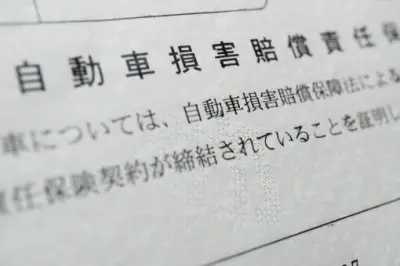 自動車損害賠償責任保
車については、自動車損害賠償保障法による
責任保険契約が締結されていることを証明し